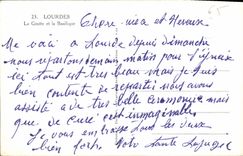 23. LOURDES
La Grotte et la Basilique
Chere
Me voilà a Lourde depuis Dimanche
nous repartons demain matin pour
ici tout est très beau mais je suis
bien contente de repartir nous avons
assisté a de très belle ceremonie mais
que de c'est inimaginable
Je vous embrasse tous les deux
bien fort votre